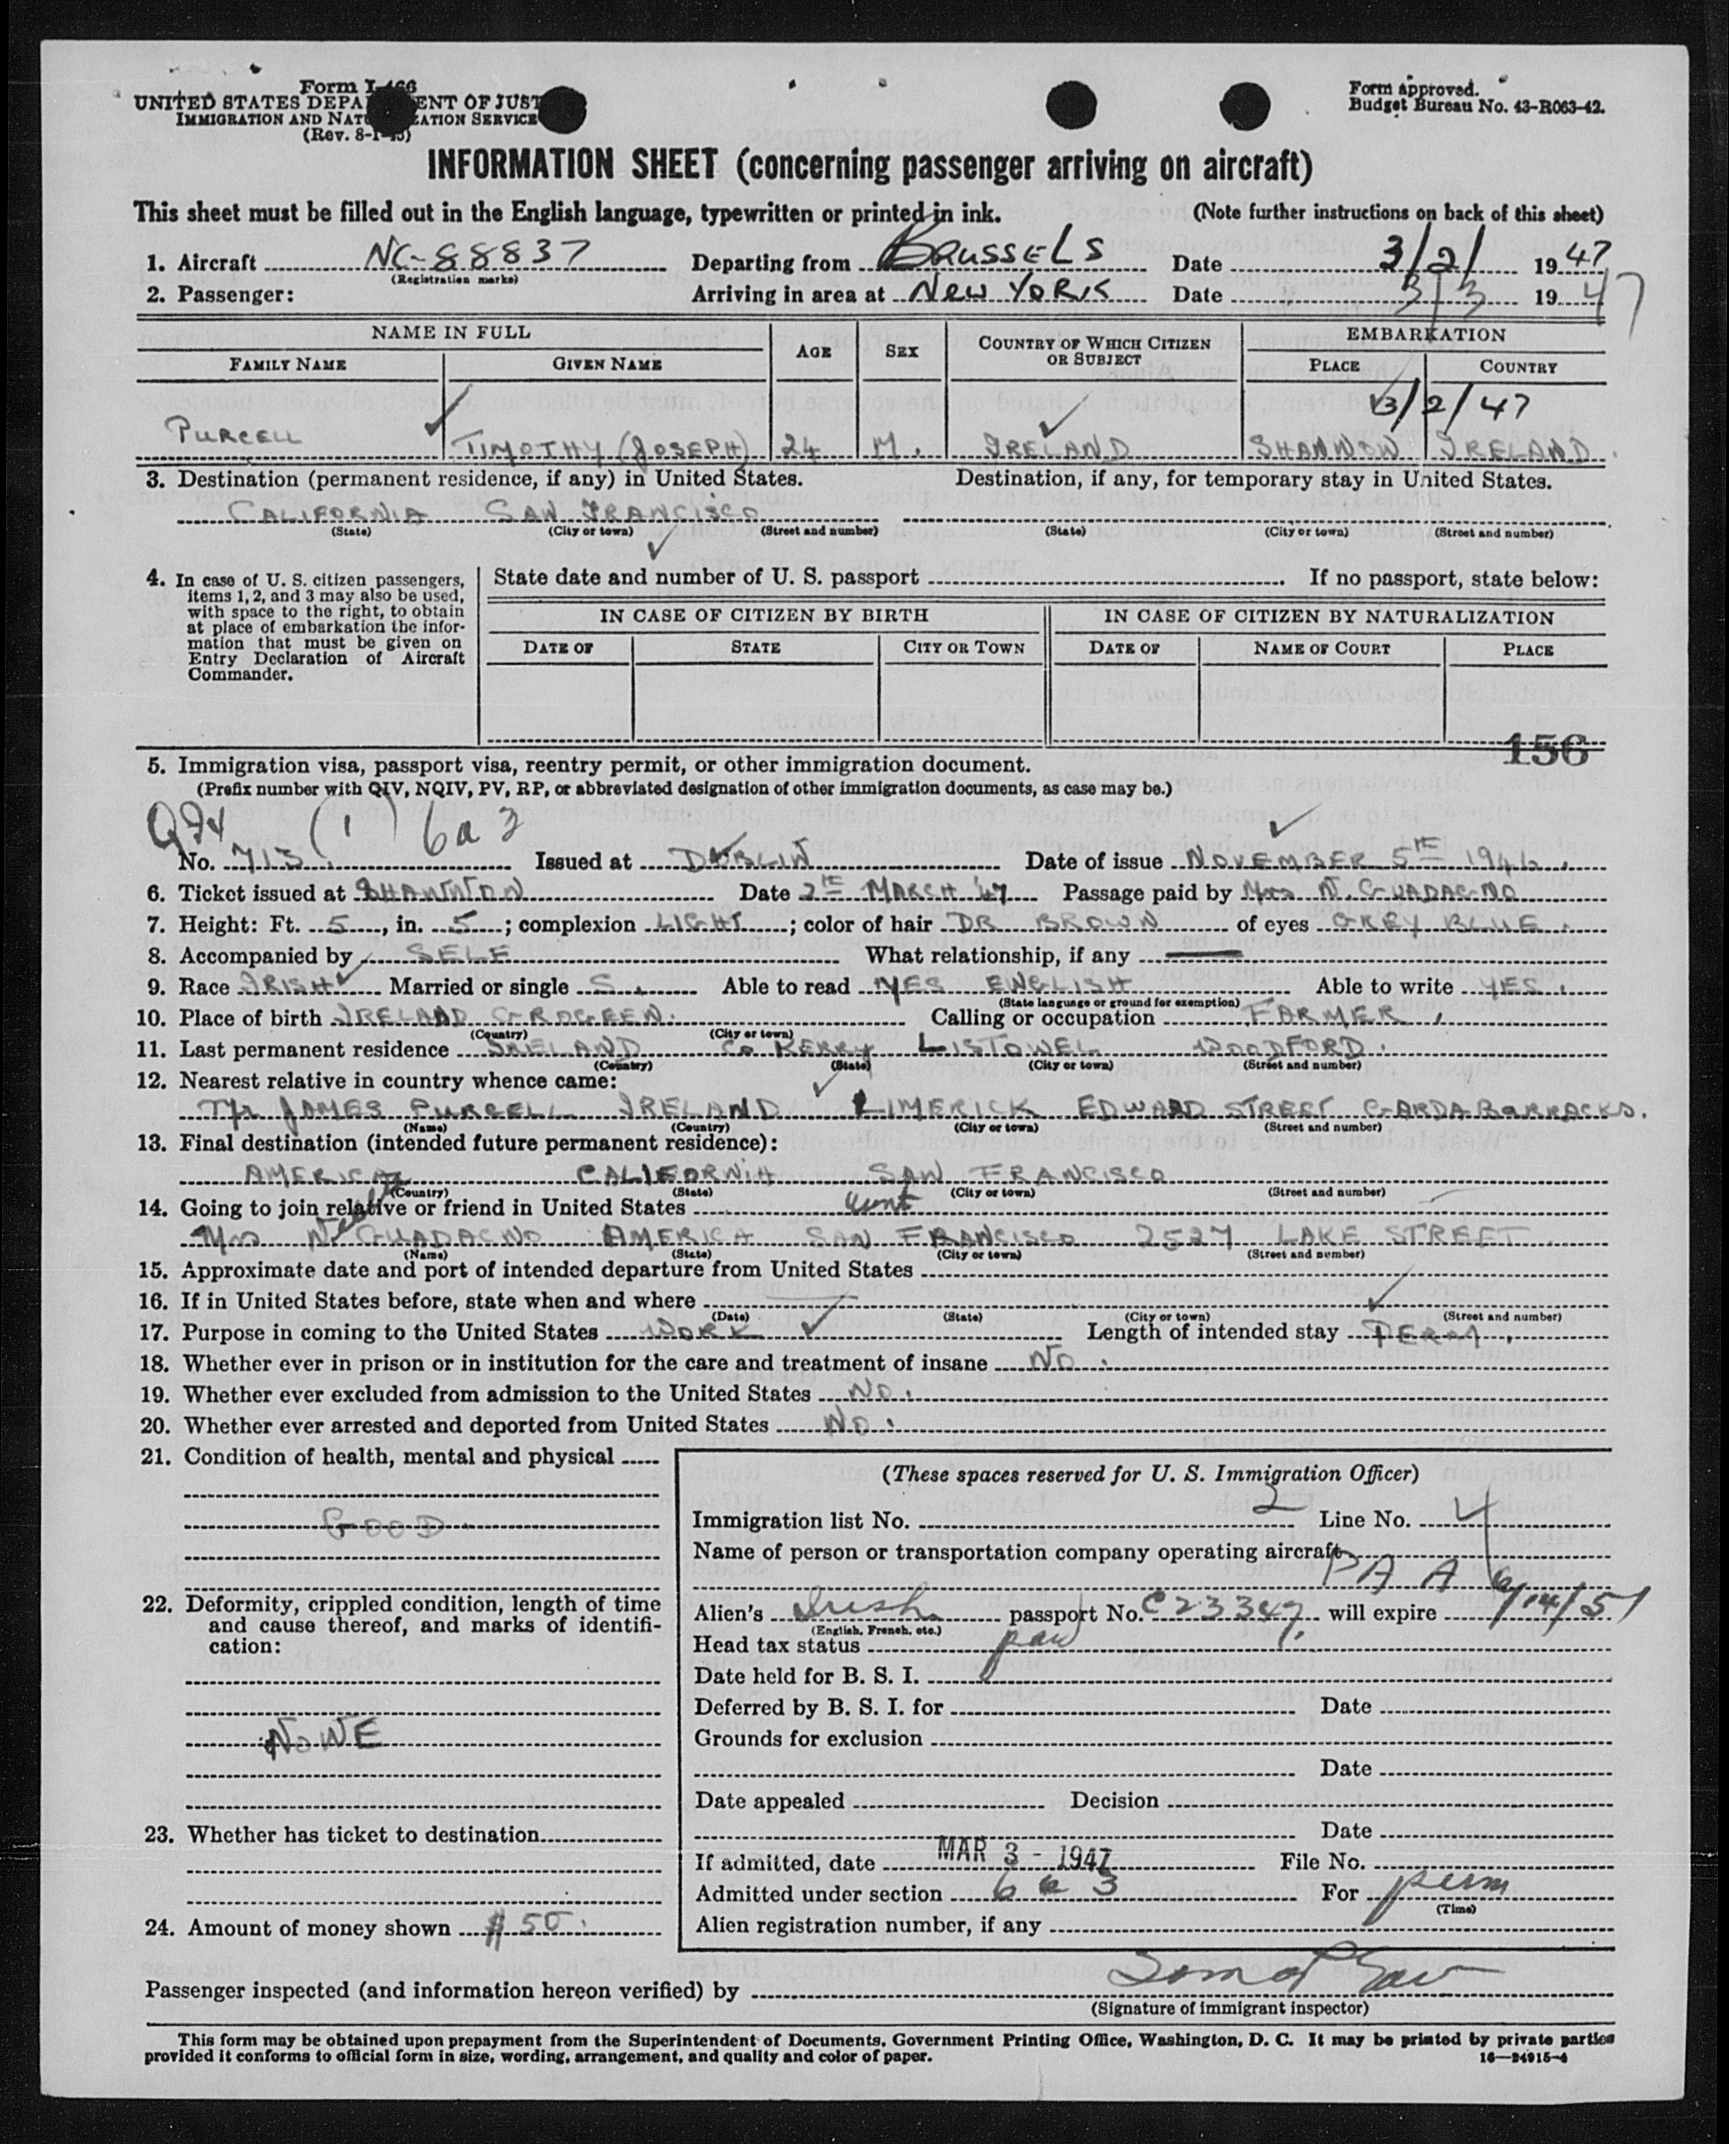 Form I-466
UNITED STATES DEPARTMENT OF JUSTICE
IMMIGRATION AND NATURALIZATION SERVICE
(Rev. 8-1-45)
Form approved.
Budget Bureau No. 43-R063-42.
INFORMATION SHEET (concerning passenger arriving on aircraft)
This sheet must be filled out in the English language, typewritten or printed in ink. (Note further instructions on back of this sheet)
1. Aircraft NC-88837 Departing from BRUSSELS Date 3/2/ 1947
(Registration marks)
2. Passenger: Arriving in area at NEW YORK Date 3/3 1947
NAME IN FULL AGE SEX COUNTRY OF WHICH CITIZEN OR SUBJECT EMBARKATION
FAMILY NAME GIVEN NAME PLACE COUNTRY
3/2/47
PURCELL TIMOTHY (JOSEPH) 24 M. IRELAND SHANNON IRELAND.
3. Destination (permanent residence, if any) in United States. Destination, if any, for temporary stay in United States.
CALIFORNIA SAN FRANCISCO
(State) (City or town) (Street and number) (State) (City or town) (Street and number)
4. In case of U. S. citizen passengers, items 1, 2, and 3 may also be used, with space to the right, to obtain at place of embarkation the information that must be given on Entry Declaration of Aircraft Commander.
State date and number of U. S. passport If no passport, state below:
IN CASE OF CITIZEN BY BIRTH IN CASE OF CITIZEN BY NATURALIZATION
DATE OF STATE CITY OR TOWN DATE OF NAME OF COURT PLACE
156
5. Immigration visa, passport visa, reentry permit, or other immigration document.
(Prefix number with QIV, NQIV, PV, RP, or abbreviated designation of other immigration documents, as case may be.)
QIV (1) 6a3
No. 713. Issued at DUBLIN Date of issue NOVEMBER 5TH 1946.
6. Ticket issued at SHANNON Date 2TH MARCH '47 Passage paid by Mrs N. GUADAGNO
7. Height: Ft. 5, in. 5; complexion LIGHT; color of hair DR BROWN of eyes GREY BLUE.
8. Accompanied by SELF What relationship, if any —
9. Race IRISH Married or single S. Able to read YES ENGLISH Able to write YES.
(State language or ground for exemption)
10. Place of birth IRELAND GROGEEN. Calling or occupation FARMER.
(Country) (City or town)
11. Last permanent residence IRELAND Co KERRY LISTOWEL WOODFORD.
(Country) (State) (City or town) (Street and number)
12. Nearest relative in country whence came:
Mr JAMES PURCELL IRELAND LIMERICK EDWARD STREET GARDA BARRACKS.
(Name) (Country) (City or town) (Street and number)
13. Final destination (intended future permanent residence):
AMERICA CALIFORNIA SAN FRANCISCO
(Country) (State) (City or town) (Street and number)
14. Going to join relative or friend in United States aunt
Mrs N. GUADAGNO AMERICA SAN FRANCISCO 2527 LAKE STREET
(Name) (State) (City or town) (Street and number)
15. Approximate date and port of intended departure from United States
16. If in United States before, state when and where —
(Date) (State) (City or town) (Street and number)
17. Purpose in coming to the United States WORK Length of intended stay PERM.
18. Whether ever in prison or in institution for the care and treatment of insane NO.
19. Whether ever excluded from admission to the United States NO.
20. Whether ever arrested and deported from United States NO.
21. Condition of health, mental and physical
GOOD.
22. Deformity, crippled condition, length of time and cause thereof, and marks of identification:
NONE
23. Whether has ticket to destination
24. Amount of money shown $50.
(These spaces reserved for U. S. Immigration Officer)
Immigration list No. 2 Line No. 4
Name of person or transportation company operating aircraft
PAA
Alien's Irish passport No. C23347. will expire 6/14/51
(English, French, etc.)
Head tax status paid
Date held for B. S. I.
Deferred by B. S. I. for Date
Grounds for exclusion
Date
Date appealed Decision
Date
If admitted, date MAR 3 - 1947 File No.
Admitted under section 6a3 For perm
(Time)
Alien registration number, if any
Passenger inspected (and information hereon verified) by
(Signature of immigrant inspector)
This form may be obtained upon prepayment from the Superintendent of Documents, Government Printing Office, Washington, D. C. It may be printed by private parties
provided it conforms to official form in size, wording, arrangement, and quality and color of paper. 16—24915-4